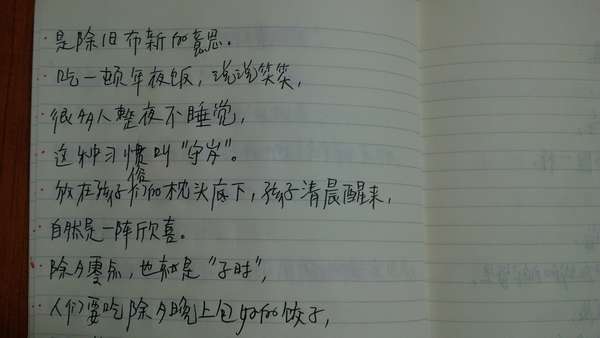 是除旧布新的意思。
吃一顿年夜饭，说说笑笑，
很多人整夜不睡觉，
这种习惯叫“守岁”。
俗
放在孩子们的枕头底下，孩子清晨醒来，
自然是一阵欣喜。
除夕零点，也就是“子时”，
人们要吃除夕晚上包好的饺子，